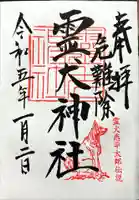 奉拝
危難除
霊犬神社
令和五年一月二日
霊犬悉平太郎伝説